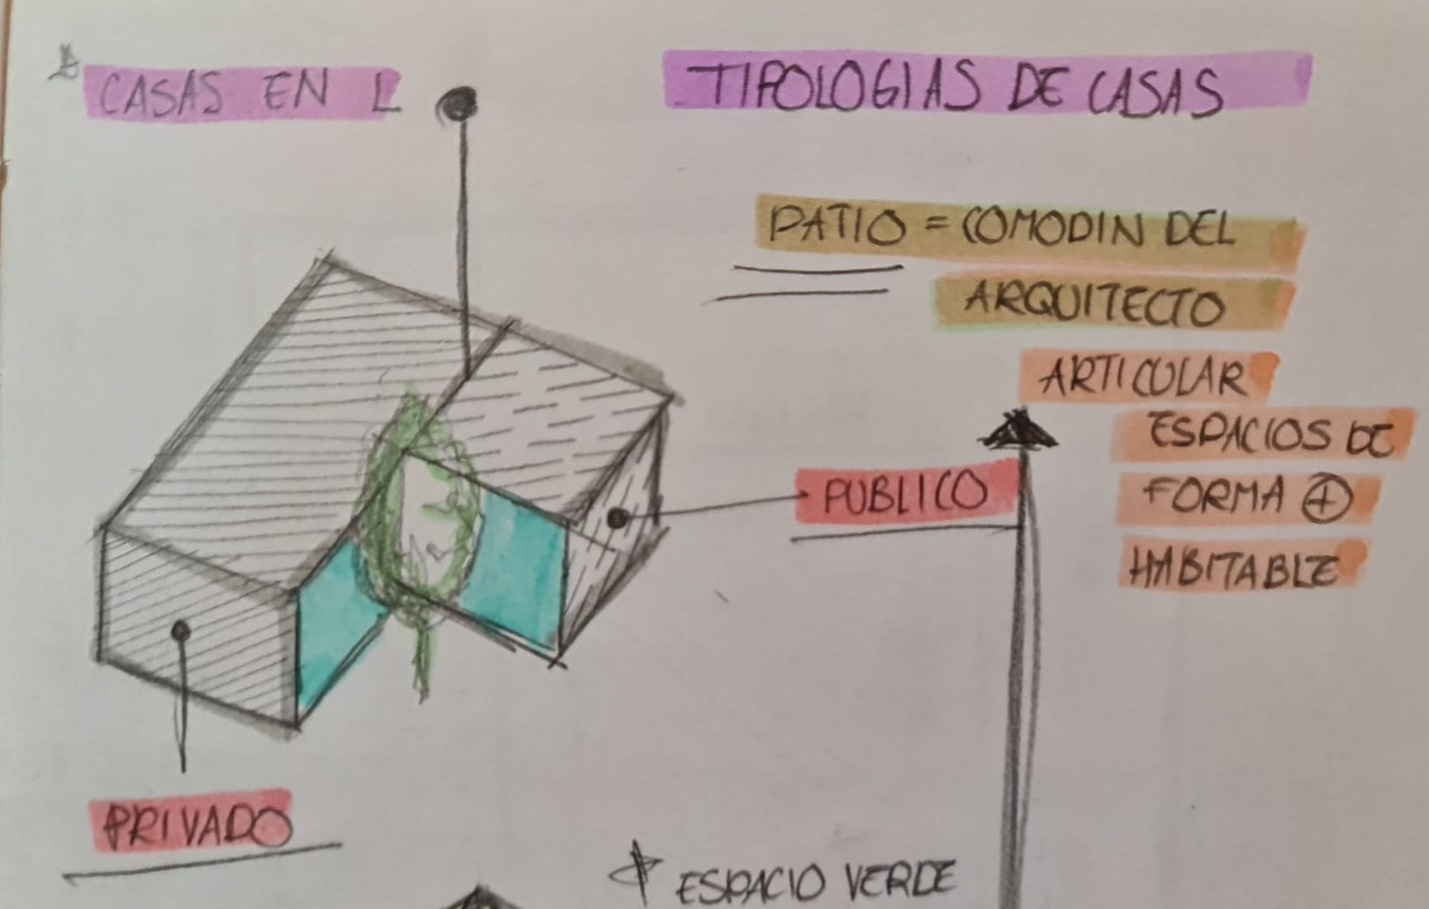 CASAS EN L
TIPOLOGIAS DE CASAS
PATIO = COMODIN DEL
ARQUITECTO
ARTICULAR
ESPACIOS DE
FORMA ⊕
HABITABLE
PUBLICO
PRIVADO
ESPACIO VERDE